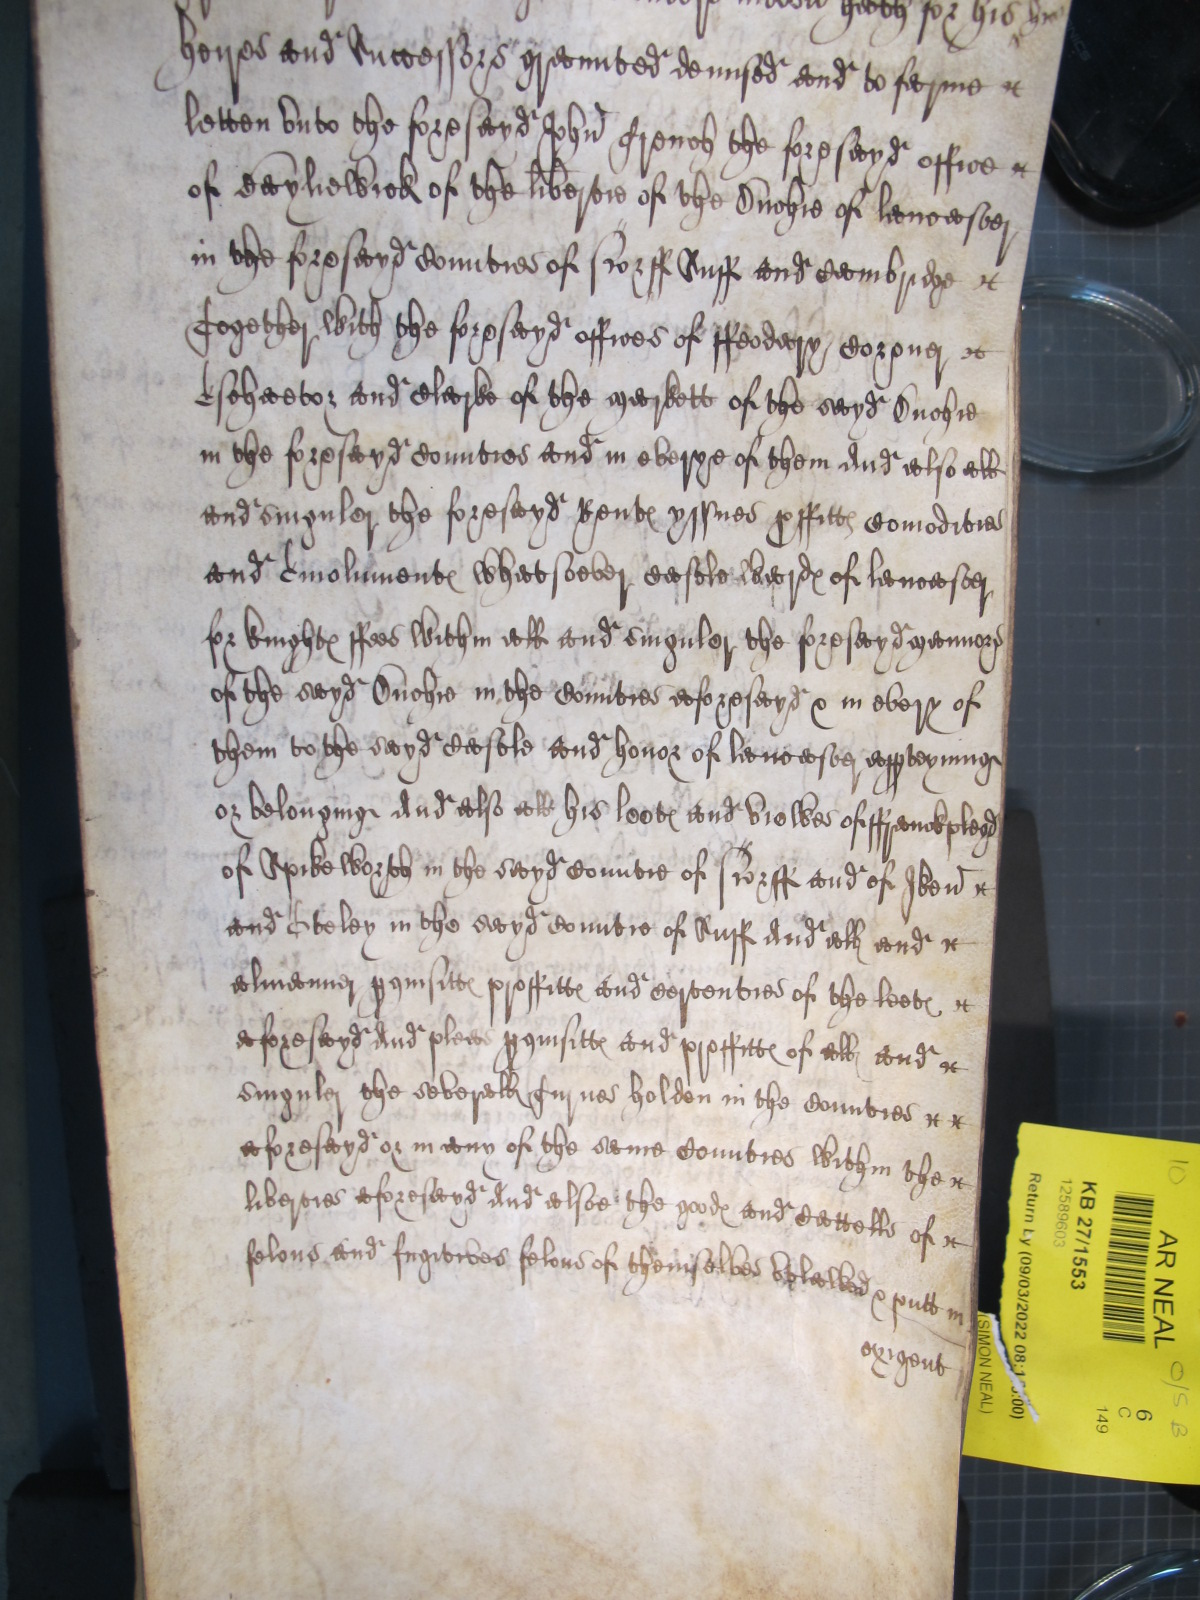 hath for his
heires and Successors graunted demised and to ferme
letten unto the foresayd John Frenche the foresayd office
of Bayliewick of the libertie of the Duchie of lancaster
in the foresayd Counties of Norff Suff and Cambridge
Together with the foresayd offices of ffeodary Coroner
Eschaetor and Clarke of the markett of the sayd Duchie
in the foresayd Counties and in everye of them And also all
and singuler the foresayd Rents yssues proffitts Comodities
and Emoluments whatsoever Castle wards of lancaster
for knights ffees within all and singuler the foresayd mannors
of the sayd Duchie in the Counties aforesayd & in every of
them to the sayd Castle and honor of lancaster apperteyninge
or belonginge And also all his leets and viewes of ffranckplegd
of Spikeworth in the sayd Countie of Norff and of Iken
and Eteley in the sayd Countie of Suff And all and
almanner perquisitts proffitts and certenties of the leets
aforesayd And pleas perquisitts and proffitts of all and
singuler the severall Turnes holden in the Counties
aforesayd or in any of the same Counties within the
liberties aforesayd And alsoe the goods and Cattells of
felons and fugitives felons of themselves & putt in
exigent
AR NEAL
KB 27/1553
12589603
Return by (09/03/2022
(SIMON NEAL)
6
C
149
10
O/S B